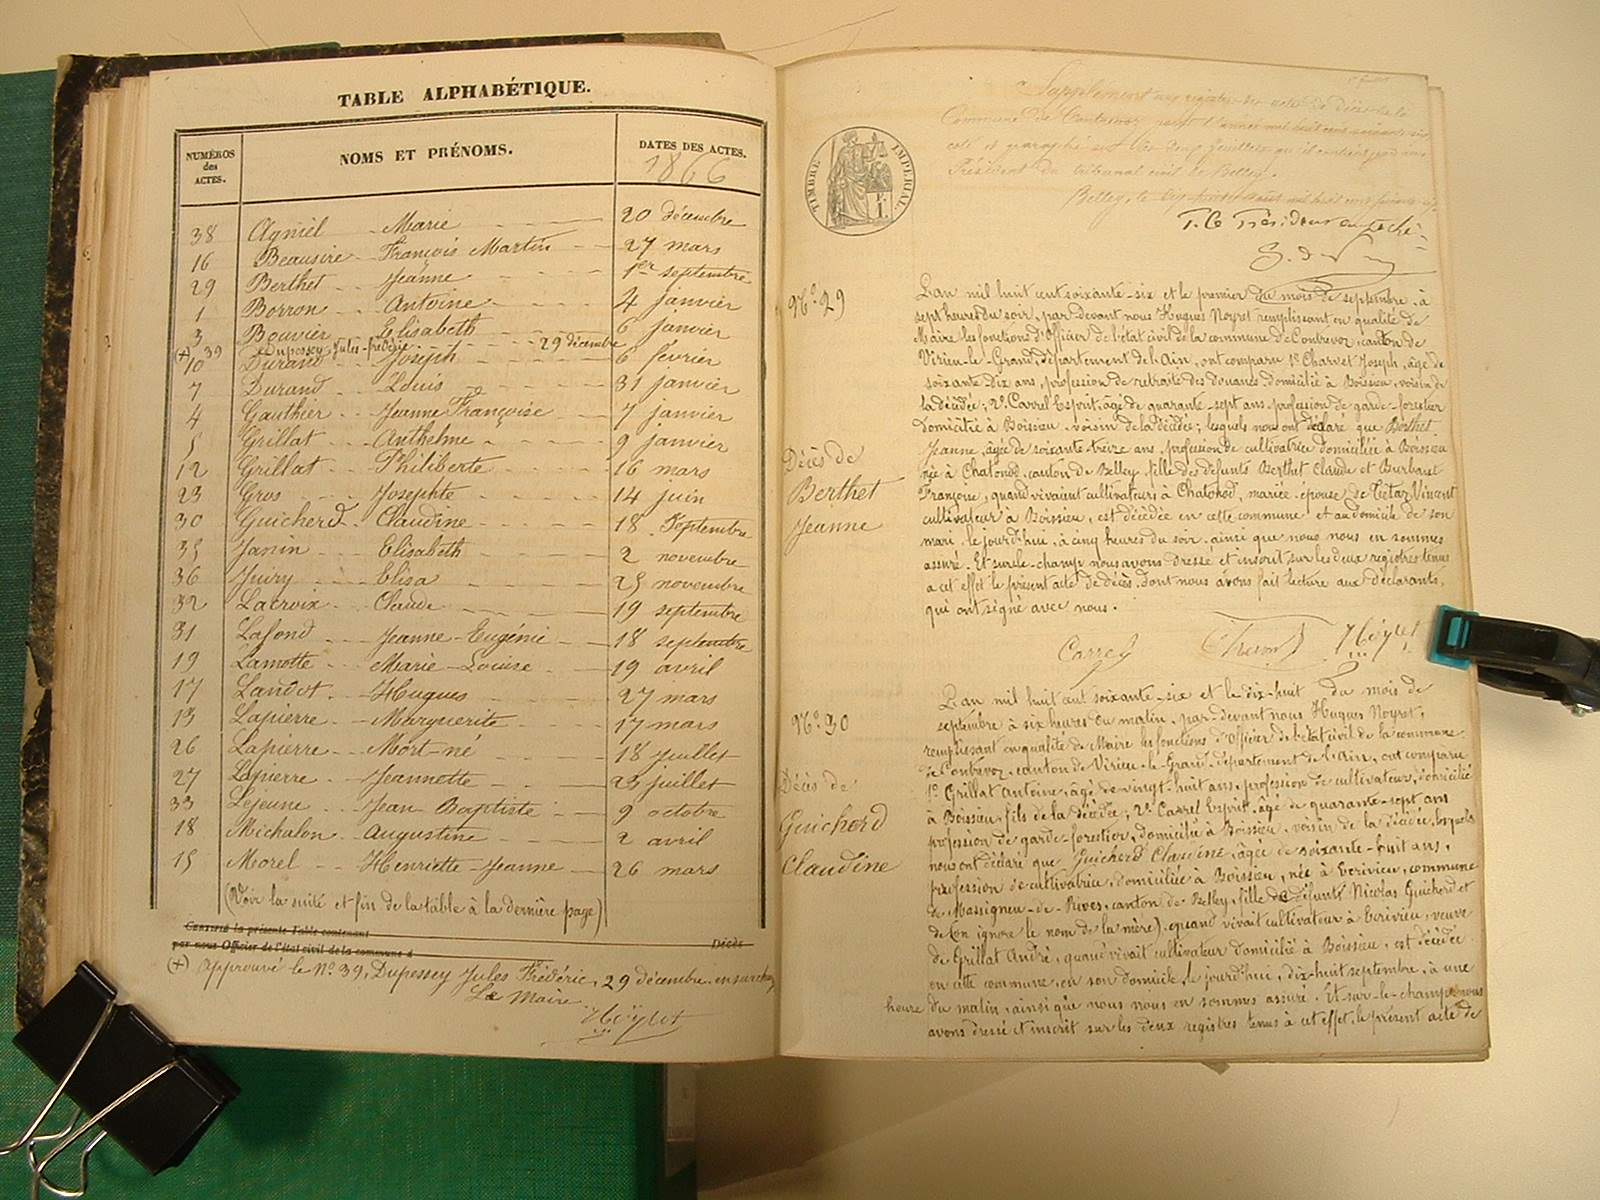 TABLE ALPHABÉTIQUE.
NUMÉROS des ACTES. NOMS ET PRÉNOMS. DATES DES ACTES.
1866
38 Agniel Marie 20 décembre
16 Beausire François Martin 27 mars
29 Berthet Jeanne 1er septembre
1 Borron Antoine 4 janvier
3 Bouvier Elisabeth 6 janvier
(+) 39 Dupessey Jules-frédéric 29 décembre
10 Durand Joseph 6 février
7 Durand Louis 31 janvier
4 Gauthier Jeanne Françoise 7 janvier
5 Grillat Anthelme 9 janvier
12 Grillat Philiberte 16 mars
23 Gros Josephte 14 juin
30 Guicherd Claudine 18 Septembre
35 Janin Elisabeth 2 novembre
36 Juivry Elisa 25 novembre
32 Lacroix Claude 19 septembre
31 Lafond Jeanne-Eugénie 18 septembre
19 Lamotte Marie-Louise 19 avril
17 Landot Hugues 27 mars
13 Lapierre Marguerite 17 mars
26 Lapierre Mort-né 18 juillet
27 Lapierre Jeannette 23 juillet
33 Lejeune Jean-Baptiste 9 octobre
18 Michalon Augustine 2 avril
15 Morel Henriette-Jeanne 26 mars
(Voir la suite et fin de la table à la dernière page)
CERTIFIÉ la présente Table contenant Décès
par nous Officier de l'état civil de la commune d
(+) Approuvé le N° 39, Dupessey Jules Frédéric, 29 décembre, en surcharge
Le Maire
Noyret
Supplément aux registres des actes de décès de la
Commune de Contrevoz pour l'année mil huit cent soixante six
coté et paraphé sur les deux feuilles qu'il contient par nous
Président du tribunal civil de Belley.
Belley, le dix huit août mil huit cent soixante six
P. le Président empêché
TIMBRE IMPÉRIAL
N° 29
Décès de
Berthet
Jeanne
L'an mil huit cent soixante-six et le premier du mois de septembre, à
sept heures du soir, par devant nous Hugues Noyret remplissant en qualité de
Maire les fonctions d'Officier de l'état civil de la commune de Contrevoz, canton de
Virieu-le-Grand, département de l'Ain, ont comparu 1° Charvet Joseph, âgé de
soixante dix ans, profession de retraité des douanes, domicilié à Boissieu, voisin de
la décédée; 2° Carrel Esprit, âgé de quarante-sept ans, profession de garde-forestier
domicilié à Boissieu, voisin de la décédée; lesquels nous ont déclaré que Berthet
Jeanne, âgée de soixante treize ans, profession de cultivatrice domiciliée à Boissieu
née à Chatonod, canton de Belley, fille des défunts Berthet Claude et Burbaret
Françoise, quand vivaient cultivateurs à Chatonod, mariée épouse de Tétaz Vincent
cultivateur à Boissieu, est décédée en cette commune et au domicile de son
mari, le jourd'hui, à cinq heures du soir, ainsi que nous nous en sommes
assuré. Et sur le-champ nous avons dressé et inscrit sur les deux registres tenus
a cet effet le présent acte de décès, dont nous avons fait lecture aux déclarants,
qui ont signé avec nous.
Carrel Charvet Noyret
N° 30
Décès de
Guicherd
Claudine
L'an mil huit cent soixante-six et le dix-huit du mois de
septembre à six heures du matin, par-devant nous Hugues Noyret,
remplissant en qualité de Maire les fonctions d'Officier de l'état civil de la commune
de Contrevoz, canton de Virieu-le-Grand, département de l'Ain, ont comparu
1° Grillat Antoine, âgé de vingt-huit ans, profession de cultivateur, domicilié
à Boissieu, fils de la décédée; 2° Carrel Esprit, âgé de quarante-sept ans
profession de garde-forestier, domicilié à Boissieu, voisin de la décédée, lesquels
nous ont déclaré que Guicherd Claudine, âgée de soixante-huit ans,
profession de cultivatrice, domiciliée à Boissieu, née à Ecrivieu, commune
de Massigneu-de-Rives, canton de Belley, fille de défunts Nicolas Guicherd et
de (on ignore le nom de la mère), quand vivait cultivateur à Ecrivieu, veuve
de Grillat André, quand vivait cultivateur domicilié à Boissieu, est décédée
en cette commune, en son domicile, le jourd'hui, dix-huit septembre, à une
heure du matin, ainsi que nous nous en sommes assuré. Et sur-le-champ nous
avons dressé et inscrit sur les deux registres tenus à cet effet, le présent acte de